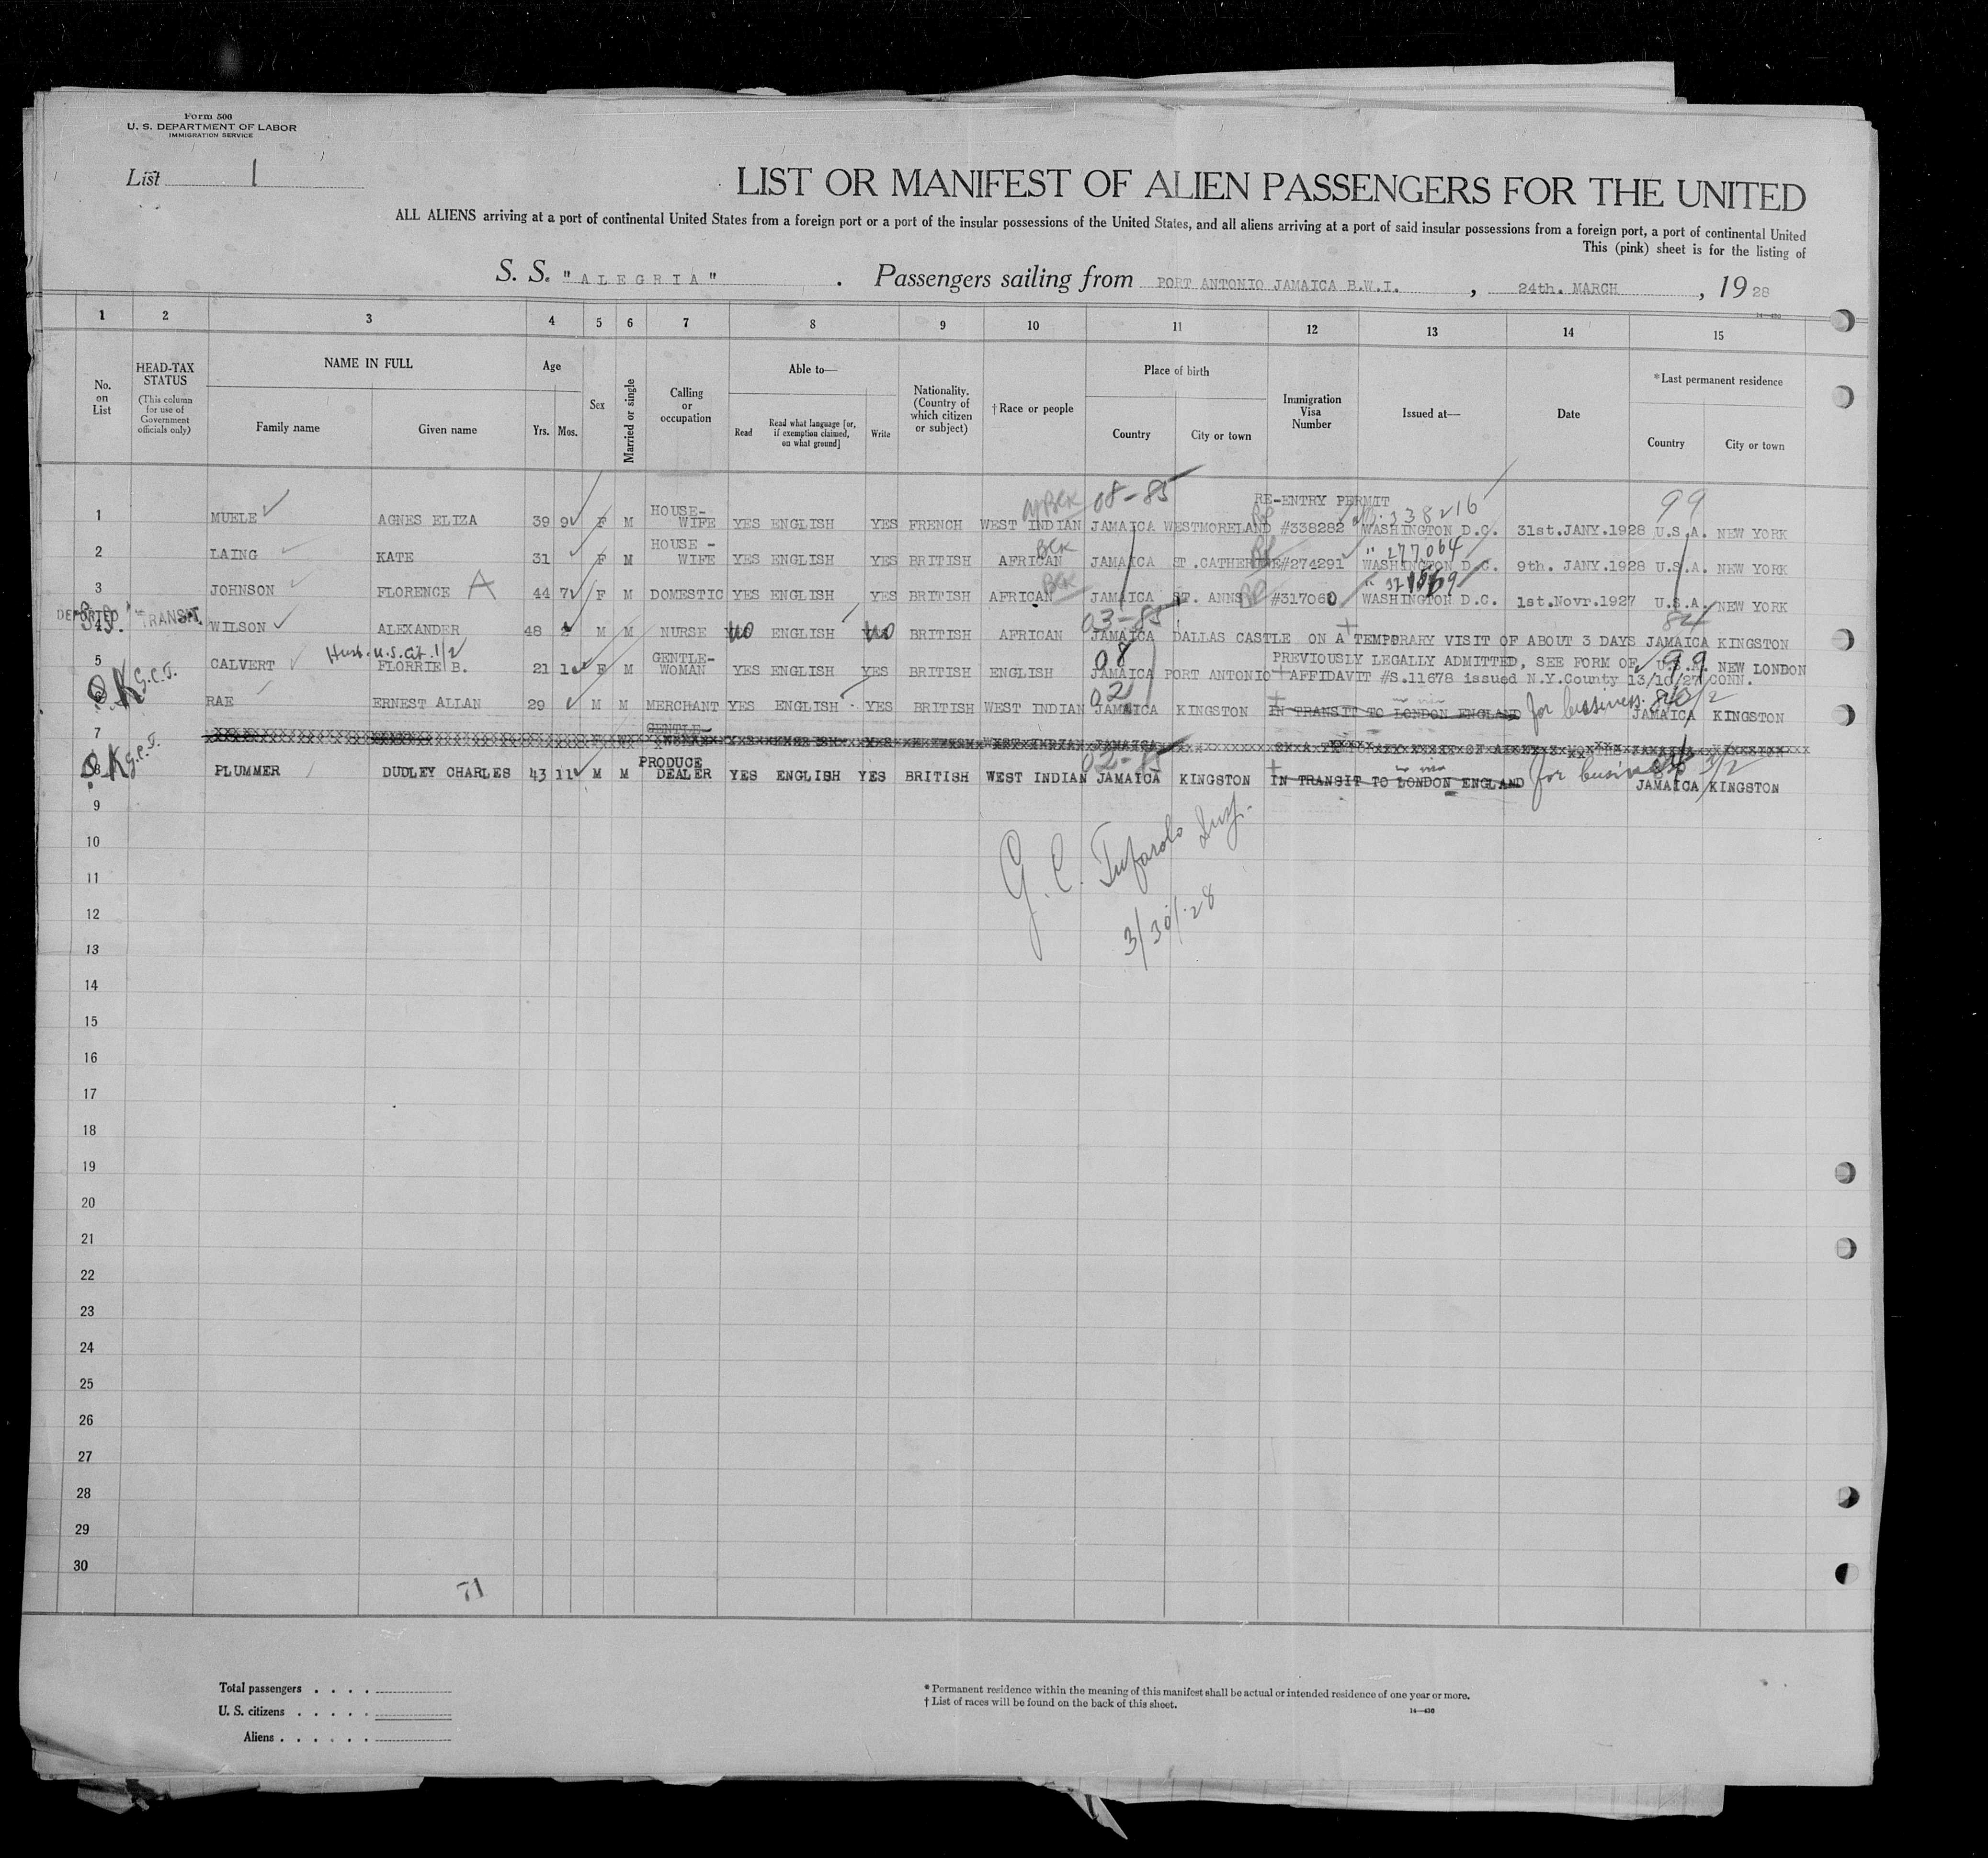 Form 500
U. S. DEPARTMENT OF LABOR
IMMIGRATION SERVICE
List 1
LIST OR MANIFEST OF ALIEN PASSENGERS FOR THE UNITED
ALL ALIENS arriving at a port of continental United States from a foreign port or a port of the insular possessions of the United States, and all aliens arriving at a port of said insular possessions from a foreign port, a port of continental United
This (pink) sheet is for the listing of
S. S. "ALEGRIA". Passengers sailing from PORT ANTONIO JAMAICA B.W.I., 24th. MARCH, 1928
14-430
1 2 3 4 5 6 7 8 9 10 11 12 13 14 15
No. on List
HEAD-TAX STATUS (This column for use of Government officials only)
NAME IN FULL
Family name Given name
Age
Yrs. Mos.
Sex
Married or single
Calling or occupation
Able to—
Read Read what language [or, if exemption claimed, on what ground] Write
Nationality. (Country of which citizen or subject)
† Race or people
Place of birth
Country City or town
Immigration Visa Number
Issued at—
Date
*Last permanent residence
Country City or town
BCK 08-85 RE-ENTRY PERMIT 338216 99
1 MUELE AGNES ELIZA 39 9 F M HOUSE-WIFE YES ENGLISH YES FRENCH WEST INDIAN JAMAICA WESTMORELAND RP #338282 WASHINGTON D.C. 31st.JANY.1928 U.S.A. NEW YORK
BCK RP " 277064
2 LAING KATE 31 F M HOUSE-WIFE YES ENGLISH YES BRITISH AFRICAN JAMAICA ST.CATHERINE #274291 WASHINGTON D.C. 9th. JANY.1928 U.S.A. NEW YORK
BCK RP
3 JOHNSON FLORENCE A 44 7 F M DOMESTIC YES ENGLISH YES BRITISH AFRICAN JAMAICA ST. ANNS #317060 WASHINGTON D.C. 1st.Novr.1927 U.S.A. NEW YORK
DEPORTED TRANSIT. 03-85 84
4 WILSON ALEXANDER 48 2 M M NURSE no ENGLISH no BRITISH AFRICAN JAMAICA DALLAS CASTLE ON A TEMPORARY VISIT OF ABOUT 3 DAYS JAMAICA KINGSTON
Husb. U.S. cit. 1/2 08 PREVIOUSLY LEGALLY ADMITTED, SEE FORM OF 99
5 CALVERT FLORRIE B. 21 1 F M GENTLE-WOMAN YES ENGLISH YES BRITISH ENGLISH JAMAICA PORT ANTONIO AFFIDAVIT #S.11678 issued N.Y.County 13/10/27 U.S.A. NEW LONDON CONN.
OK G.C.T. 02
6 RAE ERNEST ALLAN 29 M M MERCHANT YES ENGLISH YES BRITISH WEST INDIAN JAMAICA KINGSTON IN TRANSIT TO LONDON ENGLAND for business. JAMAICA KINGSTON
7 GENTLE-
OK G.C.T. 02-85
8 PLUMMER DUDLEY CHARLES 43 11 M M PRODUCE DEALER YES ENGLISH YES BRITISH WEST INDIAN JAMAICA KINGSTON IN TRANSIT TO LONDON ENGLAND for business JAMAICA KINGSTON
9
10
G. C. Tufarolo Insp.
11
12
3/30/28
13
14
15
16
17
18
19
20
21
22
23
24
25
26
27
28
29
30
71
Total passengers
U. S. citizens
Aliens
* Permanent residence within the meaning of this manifest shall be actual or intended residence of one year or more.
† List of races will be found on the back of this sheet.
14-430